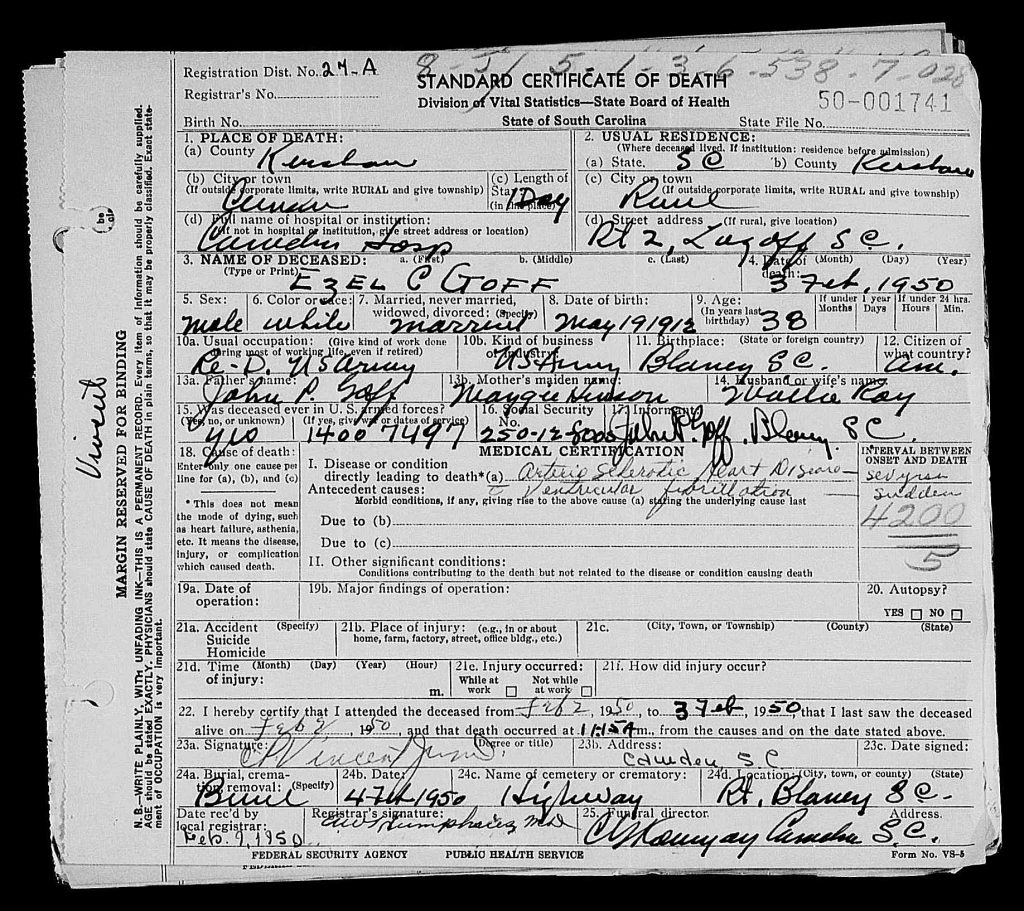 Registration Dist. No. 27-A
8-51 5-1-3-6-538-7-028
STANDARD CERTIFICATE OF DEATH
Registrar's No.
Division of Vital Statistics—State Board of Health
50-001741
Birth No.
State of South Carolina
State File No.
1. PLACE OF DEATH:
(a) County Kershaw
2. USUAL RESIDENCE:
(Where deceased lived. If institution: residence before admission)
(a) State. SC (b) County Kershaw
(b) City or town
(If outside corporate limits, write RURAL and give township)
Camden
(c) Length of
Stay
(in this place)
1 Day
(c) City or town
(If outside corporate limits, write RURAL and give township)
Rural
(d) Full name of hospital or institution:
(If not in hospital or institution, give street address or location)
Camden Hosp
(d) Street address (If rural, give location)
Rt 2, Lugoff S C.
3. NAME OF DECEASED: a. (First) b. (Middle) c. (Last)
(Type or Print)
EZEL C GOFF
4. Date of death: (Month) (Day) (Year)
3 Feb, 1950
5. Sex:
male
6. Color or race:
white
7. Married, never married,
widowed, divorced: (Specify)
married
8. Date of birth:
May 19 1912
9. Age:
(In years last
birthday) 38
If under 1 year
Months Days
If under 24 hrs.
Hours Min.
10a. Usual occupation: (Give kind of work done
during most of working life, even if retired)
Re-D. US Army
10b. Kind of business
or industry:
US Army
11. Birthplace: (State or foreign country)
Blaney SC.
12. Citizen of
what country?
am.
13a. Father's name:
John P. Goff
13b. Mother's maiden name:
Maygie Hinson
14. Husband or wife's name
Wallie Ray
15. Was deceased ever in U. S. armed forces?
(Yes, no, or unknown) (If yes, give war or dates of service)
yes 1400 7497
16. Social Security
No.
250-12-
17. Informant
John P. Goff. Blaney S C.
18. Cause of death:
Enter only one cause per
line for (a), (b), and (c)
MEDICAL CERTIFICATION
INTERVAL BETWEEN
ONSET AND DEATH
I. Disease or condition
directly leading to death*(a) Arterio Sclerotic Heart Disease
Antecedent causes: c Ventricular fibrillation
Morbid conditions, if any, giving rise to the above cause (a) stating the underlying cause last
sev yrs
sudden
4200
5
* This does not mean
the mode of dying, such
as heart failure, asthenia,
etc. It means the disease,
injury, or complication
which caused death.
Due to (b)
Due to (c)
II. Other significant conditions:
Conditions contributing to the death but not related to the disease or condition causing death
19a. Date of
operation:
19b. Major findings of operation:
20. Autopsy?
YES NO
21a. Accident (Specify)
Suicide
Homicide
21b. Place of injury: (e.g., in or about
home, farm, factory, street, office bldg., etc.)
21c. (City, Town, or Township) (County) (State)
21d. Time (Month) (Day) (Year) (Hour)
of injury: m.
21e. Injury occurred:
While at
work
Not while
at work
21f. How did injury occur?
22. I hereby certify that I attended the deceased from Feb 2, 1950, to 3 Feb, 1950, that I last saw the deceased
alive on Feb 2 1950, and that death occurred at 11:15A m., from the causes and on the date stated above.
23a. Signature: (Degree or title)
Vincent
23b. Address:
Camden, S.C.
23c. Date signed:
24a. Burial, crema-
tion, removal: (Specify)
Burial
24b. Date:
4 Feb 1950
24c. Name of cemetery or crematory:
Highway
24d. Location (City, town, or county) (State)
Rt. Blaney S C.
Date rec'd by
local registrar:
Feb. 9, 1950
Registrar's signature:
Humphries MD
25. Funeral director. Address.
Camden S.C.
FEDERAL SECURITY AGENCY PUBLIC HEALTH SERVICE
Form No. VS-5
Vincent
MARGIN RESERVED FOR BINDING
N.B.—WRITE PLAINLY, WITH UNFADING INK—THIS IS A PERMANENT RECORD. Every item of information should be carefully supplied.
AGE should be stated EXACTLY. PHYSICIANS should state CAUSE OF DEATH in plain terms, so that it may be properly classified. Exact state-
ment of OCCUPATION is very important.